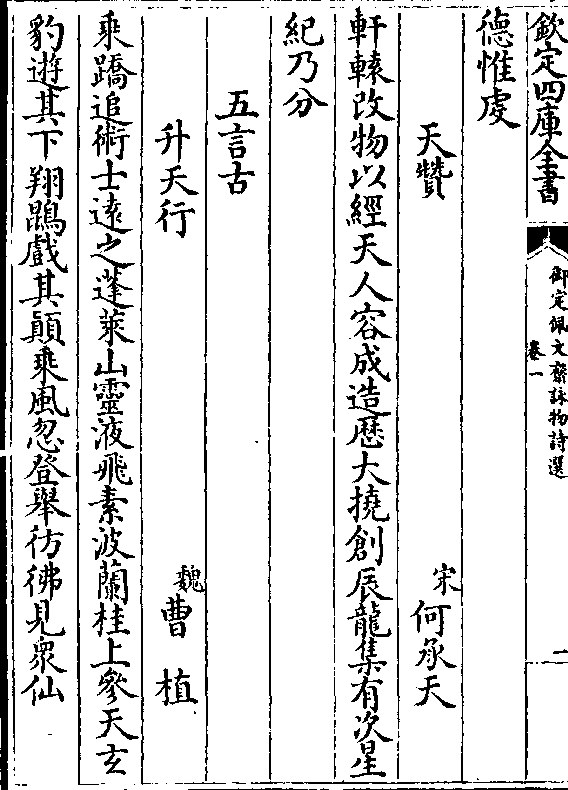 欽定四庫全書
御定佩文齋詠物詩選
卷一
一
德惟虔
天贊
宋何承天
軒轅改物以經天人容成造厯大撓創辰龍集有次星
紀乃分
五言古
升天行
魏曹植
乘蹻追術士遠之蓬萊山靈液飛素波蘭桂上參天玄
豹遊其下翔鵾戲其巔乘風忽登舉彷彿見衆仙